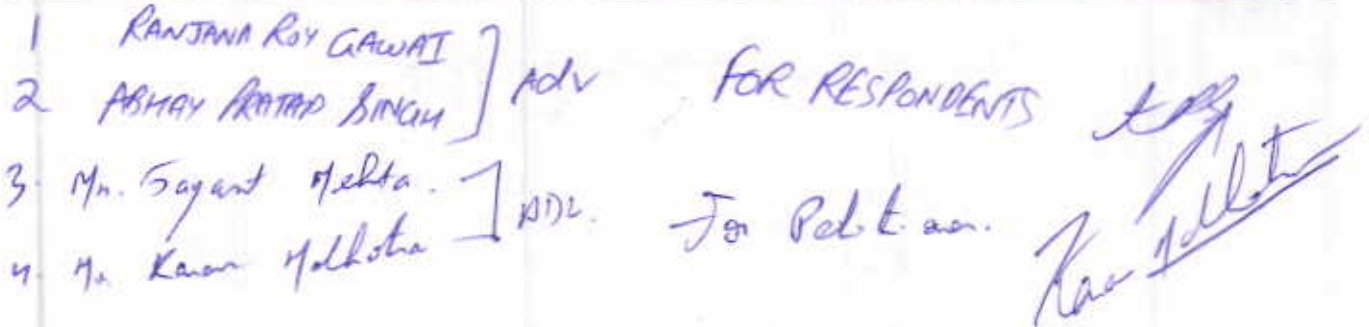 1 RANJANA ROY GAWAI
2 ABHAY PRATAP SINGH ] Adv FOR RESPONDENTS
3. Mr. Jayant Mehta.
4. Mr. Karan Malhotra ] ADV. For Petitioner.
Karan Malhotra